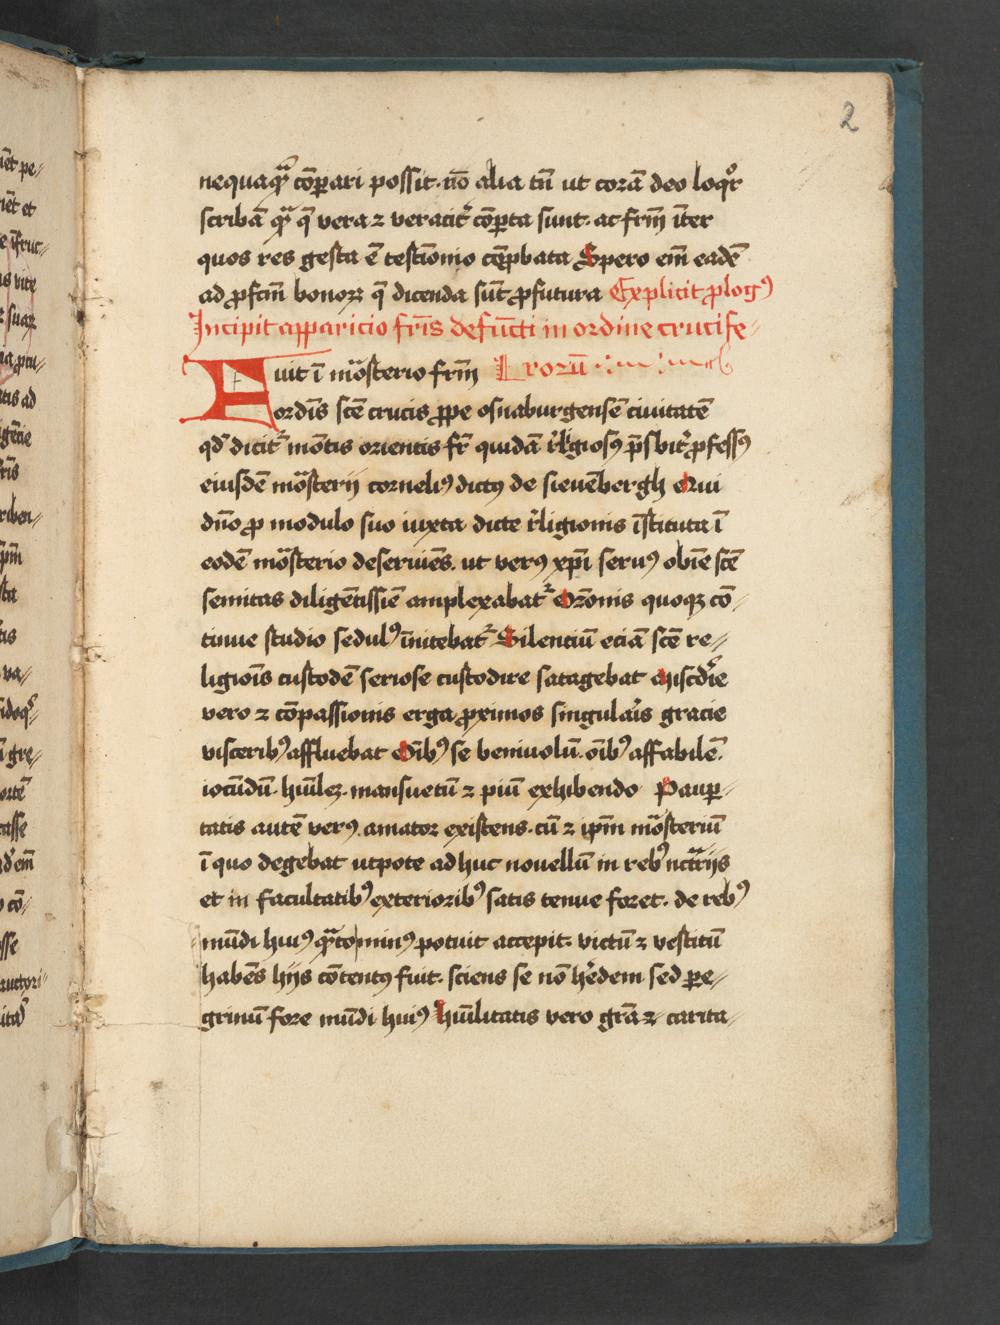 2
nequaqᷓ cōꝑari possit. nō alia tn̄ ut corā deo loqᷣr
scribā qᷓ q̄ vera ⁊ veracit᷑ cōꝑta sunt. ac frm̄ īter
quos res gesta ē testīonio cōꝓbata Spero em̄ eadē
ad ꝓfcm̄ bonoꝝ q̄ dicenda sūt ꝓfutura Explicit ꝓlogꝰ
Incipit apparicio fr̄is defūcti in ordine crucife⸗
Fuit ī mōsterio frm̄ rorū
ordīs scē crucis ꝓpe osnaburgensē ciuitatē
qd̓ dicit᷑ mōtis orientis fr̄ quidā r̄ligiosꝰ p̄sbit̓ ꝓfessꝰ
eiusdē mōsterij corneliꝰ dictꝰ de sieuēbergh Qui
dn̄o ꝓ modulo suo iuxta dicte r̄ligionis īstituta ī
eodē mōsterio deseruiēs. ut verꝰ xp̄i seruꝰ obīe scē
semitas diligētissīe amplexabat᷑ Orōnis quoqꝫ cō⸗
tinue studio sedulꝰ īnitebat᷑ Silenciū eciā scē re⸗
ligiōis custodē seriose custodire satagebat Miscd̓ie
vero ⁊ cōpassionis erga ꝓximos singulāis gracie
visceribꝰ affluebat Oībꝰ se beniuolū. oībꝰ affabilē.
iocūdū. hūilē. mansuetū ⁊ piū exhibendo Pauꝑ⸗
tatis autē verꝰ amator existens. cū ⁊ ipm̄ mōsteriū
ī quo degebat utpote adhuc nouellū in rebꝰ nc̄ārijs
et in facultatibꝰ exterioribꝰ satis tenue foret. de rebꝰ
mūdi huiꝰ qᷓto minꝰ potuit accepit. victū ⁊ vestitū
habēs hijs cōtentꝰ fuit. sciens se nō hēdem sed ꝑe⸗
grinū fore mūdi huiꝰ Hūilitatis vero grā ⁊ carita⸗